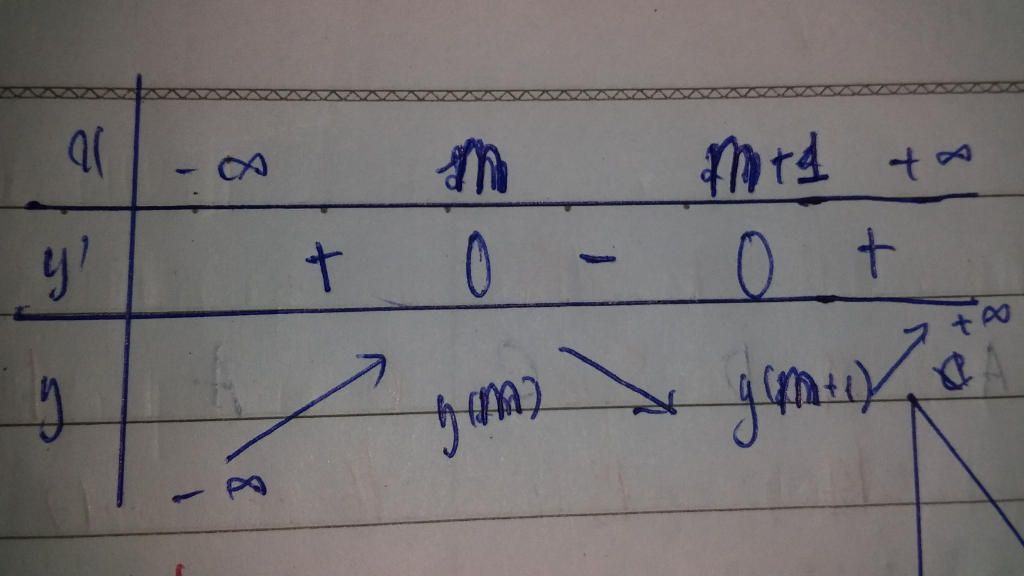 x -∞ m m+1 +∞
y' + 0 - 0 +
+∞
y y(m) y(m+1)
-∞